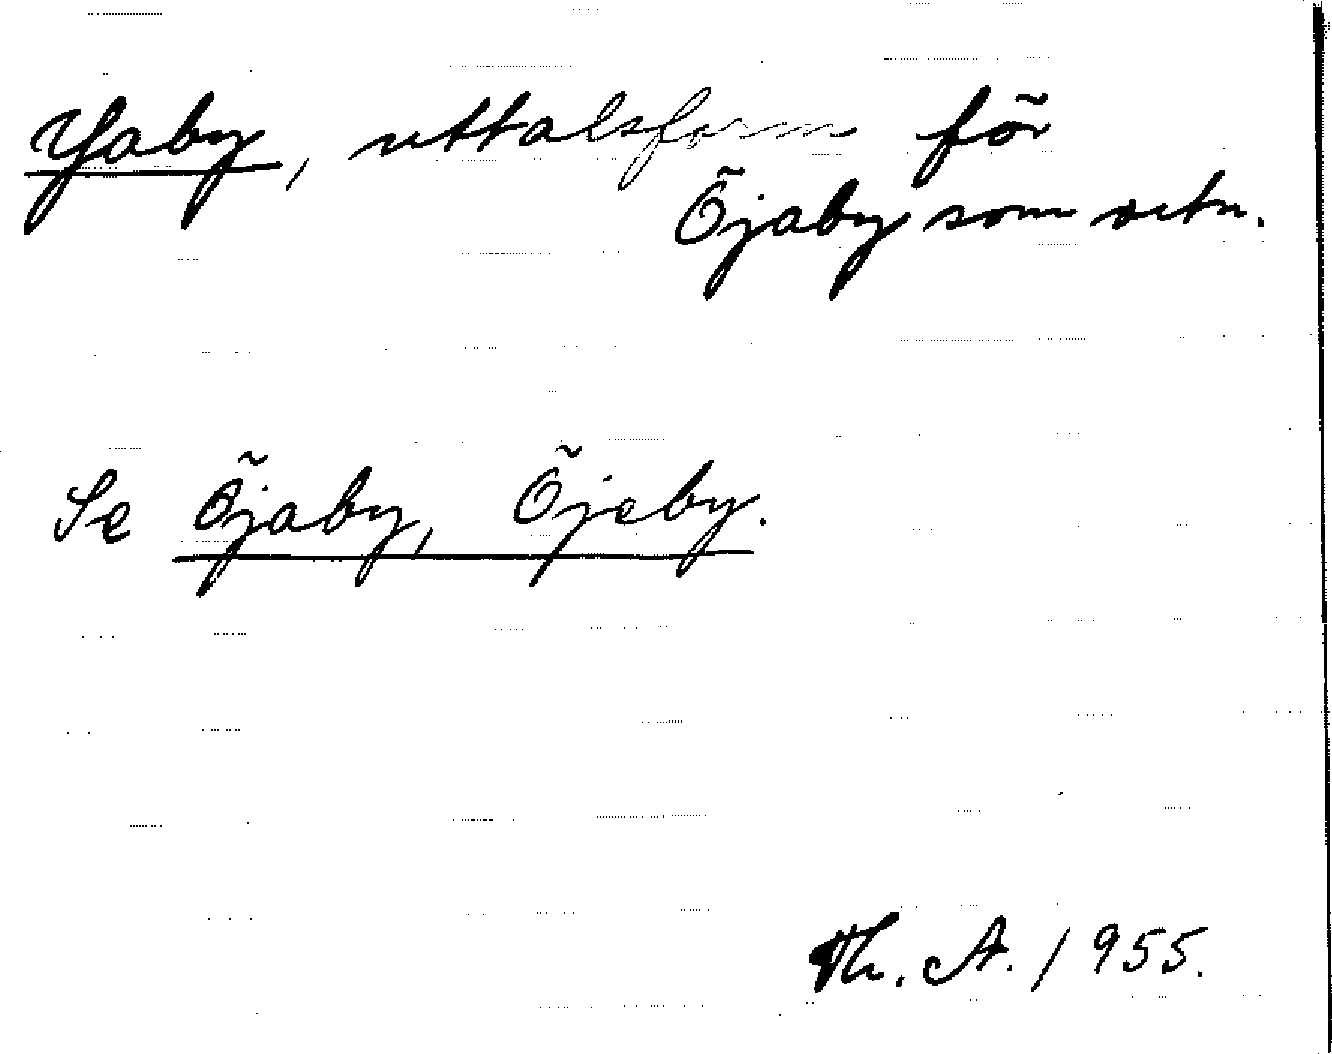 Yaby, uttalsform för
Öjaby som ortn.
Se Öjaby, Öjeby.
Th. A. 1955.